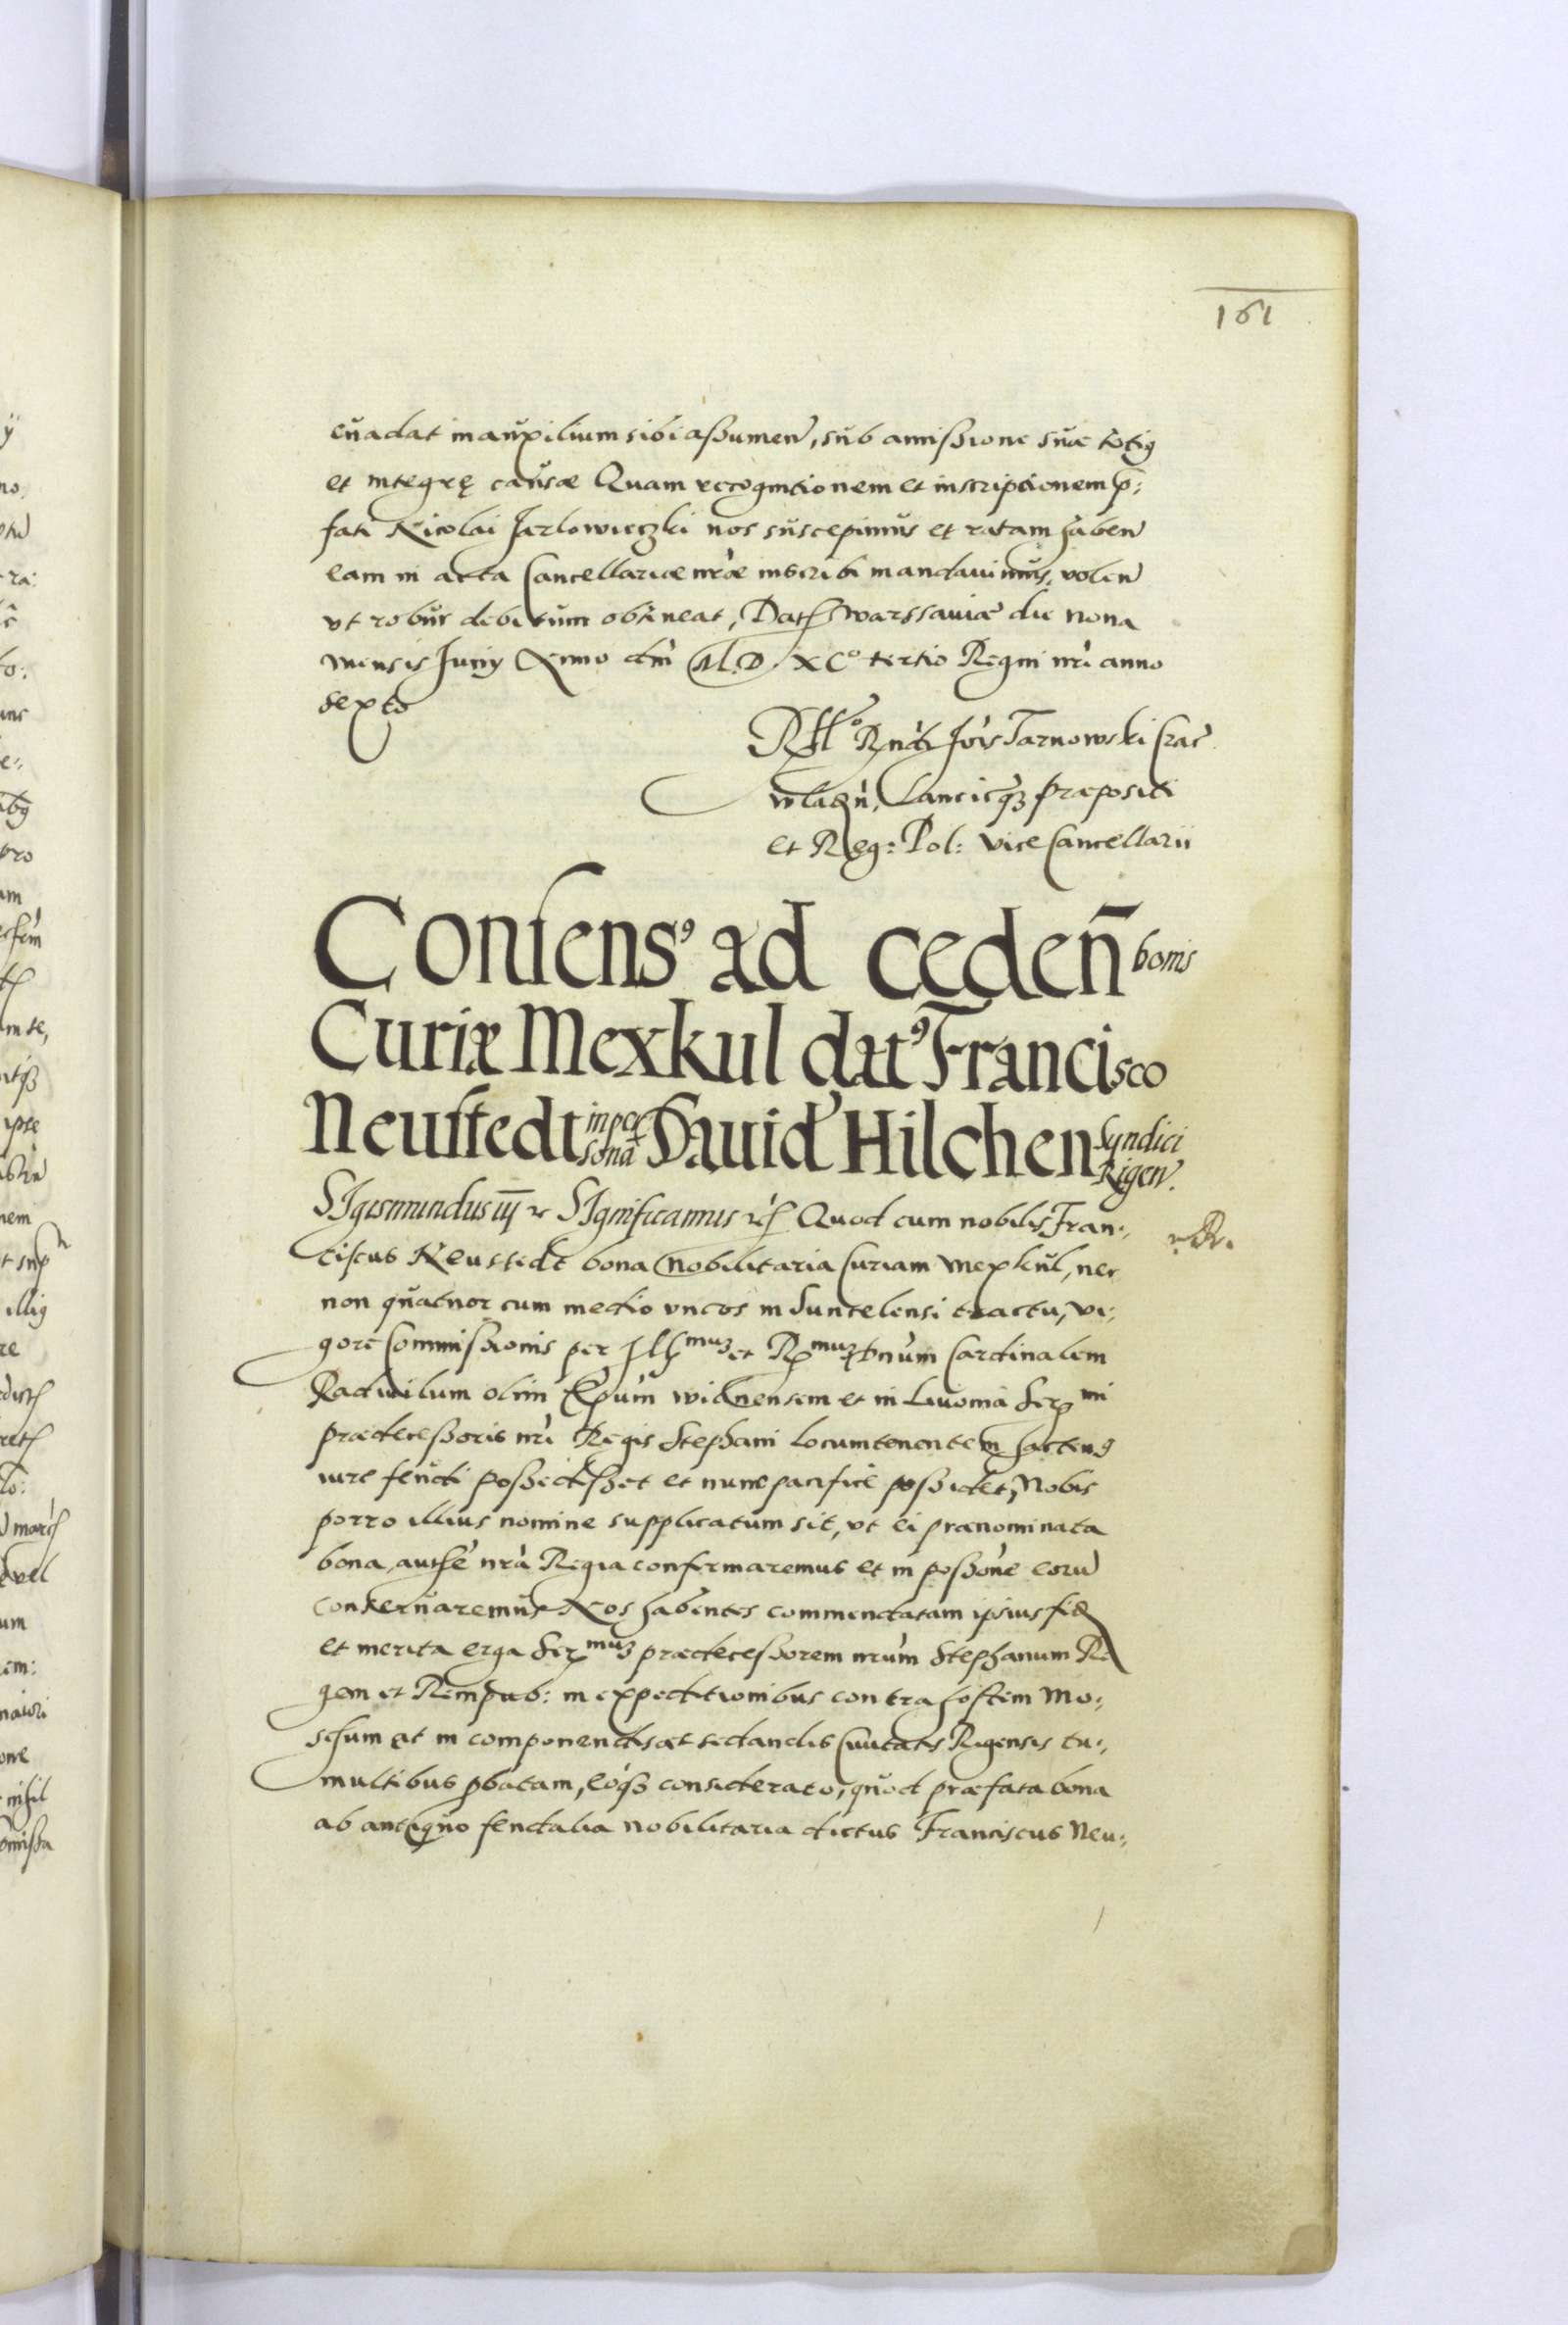 161
euadat in auxilium sibi assumen̄, sub amissione suæ totiꝰ
et integrę causæ Quam recognitionem et inscriptionem p̄:
fati Nicolai Jarlowieczki nos suscepimus et ratam haben̄
eam in acta Cancellariæ nr̄æ inscribi mandauimus, volen̄
vt robur debitum obtineat, Dat Warssauiæ die nona
mensis Juny Anno dn̄i M.D. XCº tertio Regni nr̄i anno
sexto
Rlº Rndi Joīs Tarnowski Crac̄
wladn̄, Lanciciq̄ præpositi
et Reg: Pol: vice Cancellarii
Consensꝰ ad ceden̄ bonis
Curiæ Mexkul datꝰ Francisco
Neustedt in per
sonā Dauid Hilchen Syndici
Rigen̄.
SIgismundus iij etc SIgnificamus etc Quod cum nobilis Fran:
ciscus Neustedt bona nobilitaria Curiam Mexkul, nec
non quatuor cum medio vncos in Suntelensi tractu, vi:
gore Commissionis per Ill muꝫ et R muꝫ Dnūm Cardinalem
Radiuilum olim Epūm Wilnensem et in Liuonia Ser mi
prædecessoris nr̄i Regis Stephani locumtenentem hactenꝰ
iure feudi possedisset et nunc pacificè possidet, Nobis
porro illius nomine supplicatum sit, vt ei prænominata
bona, authē nrā Regia confirmaremus et in possōne eorū
conseruaremus Nos habentes commendatam ipsius fid
et merita erga Ser muꝫ prædecessorem nrūm Stephanum Re
gem et Rempub: in expeditionibus contra hostem Mo:
schum at in componendis et sedandis Ciuitatis Rigensis tu:
multibus pbatam, eoqꝫ considerato, quod præfata bona
ab antiquo feudalia nobilitaria dictus Franciscus Neu: